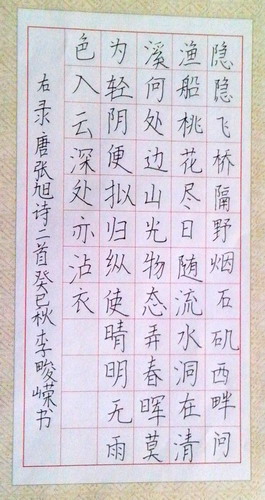 隐隐飞桥隔野烟石矶西畔问
渔船桃花尽日随流水洞在清
溪何处边山光物态弄春晖莫
为轻阴便拟归纵使晴明无雨
色入云深处亦沾衣
右录唐张旭诗二首癸巳秋李畯嵘书